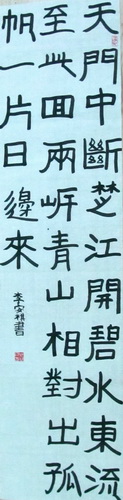 天門中斷楚江開碧水東流
至此回兩岸青山相對出孤
帆一片日邊來
李安書